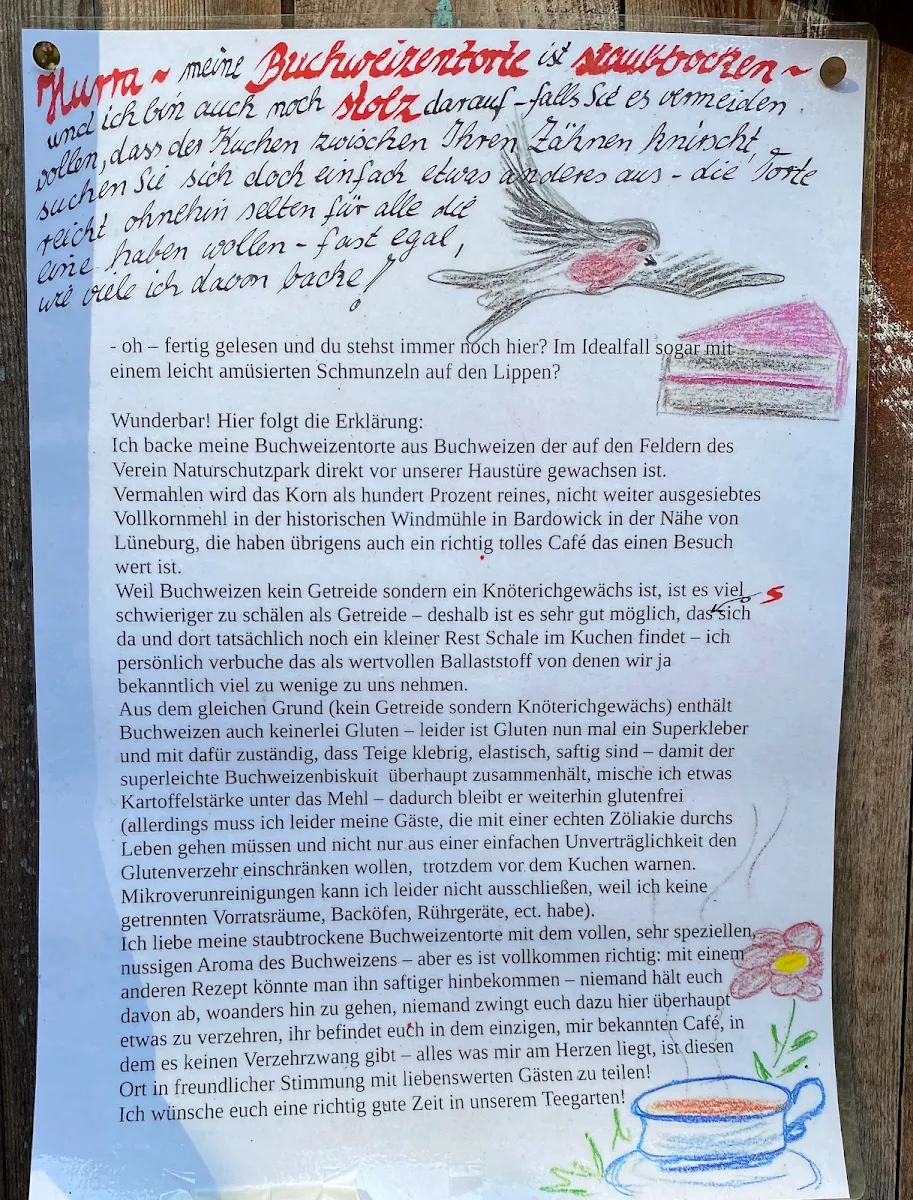 Hurra ~ meine Buchweizentorte ist staubtrocken ~
und ich bin auch noch stolz darauf - falls Sie es vermeiden
wollen, dass der Kuchen zwischen Ihren Zähnen knirscht,
suchen Sie sich doch einfach etwas anderes aus - die Torte
reicht ohnehin selten für alle die
eine haben wollen - fast egal,
wie viele ich davon backe!
- oh – fertig gelesen und du stehst immer noch hier? Im Idealfall sogar mit
einem leicht amüsierten Schmunzeln auf den Lippen?
Wunderbar! Hier folgt die Erklärung:
Ich backe meine Buchweizentorte aus Buchweizen der auf den Feldern des
Verein Naturschutzpark direkt vor unserer Haustüre gewachsen ist.
Vermahlen wird das Korn als hundert Prozent reines, nicht weiter ausgesiebtes
Vollkornmehl in der historischen Windmühle in Bardowick in der Nähe von
Lüneburg, die haben übrigens auch ein richtig tolles Café das einen Besuch
wert ist.
Weil Buchweizen kein Getreide sondern ein Knöterichgewächs ist, ist es viel s
schwieriger zu schälen als Getreide – deshalb ist es sehr gut möglich, das sich
da und dort tatsächlich noch ein kleiner Rest Schale im Kuchen findet – ich
persönlich verbuche das als wertvollen Ballaststoff von denen wir ja
bekanntlich viel zu wenige zu uns nehmen.
Aus dem gleichen Grund (kein Getreide sondern Knöterichgewächs) enthält
Buchweizen auch keinerlei Gluten – leider ist Gluten nun mal ein Superkleber
und mit dafür zuständig, dass Teige klebrig, elastisch, saftig sind – damit der
superleichte Buchweizenbiskuit überhaupt zusammenhält, mische ich etwas
Kartoffelstärke unter das Mehl – dadurch bleibt er weiterhin glutenfrei
(allerdings muss ich leider meine Gäste, die mit einer echten Zöliakie durchs
Leben gehen müssen und nicht nur aus einer einfachen Unverträglichkeit den
Glutenverzehr einschränken wollen, trotzdem vor dem Kuchen warnen.
Mikroverunreinigungen kann ich leider nicht ausschließen, weil ich keine
getrennten Vorratsräume, Backöfen, Rührgeräte, ect. habe).
Ich liebe meine staubtrockene Buchweizentorte mit dem vollen, sehr speziellen,
nussigen Aroma des Buchweizens – aber es ist vollkommen richtig: mit einem
anderen Rezept könnte man ihn saftiger hinbekommen – niemand hält euch
davon ab, woanders hin zu gehen, niemand zwingt euch dazu hier überhaupt
etwas zu verzehren, ihr befindet euch in dem einzigen, mir bekannten Café, in
dem es keinen Verzehrzwang gibt – alles was mir am Herzen liegt, ist diesen
Ort in freundlicher Stimmung mit liebenswerten Gästen zu teilen!
Ich wünsche euch eine richtig gute Zeit in unserem Teegarten!